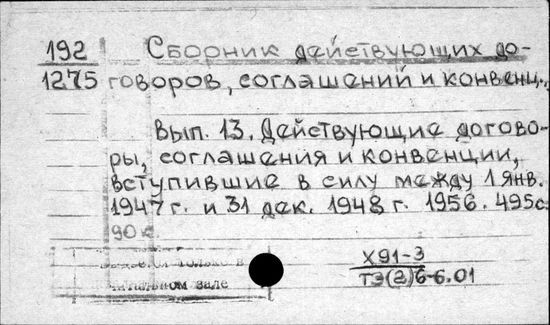 192 Сборник действующих до-
1275 говоров, соглашений и конвенц.,
Вып. 13. Действующие догово-
ры, соглашения и конвенции,
вступившие в силу между 1 янв.
1947 г. и 31 дек. 1948 г. 1956. 495с.
90к
только в
читальном зале
Х91-3
ТЭ(2)6-6.01